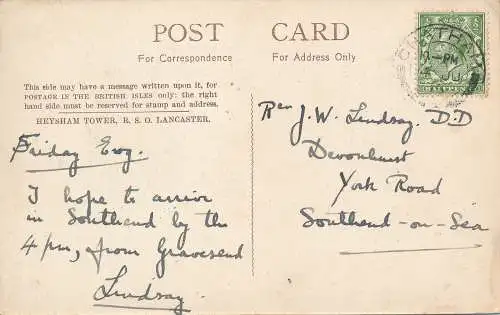 POST CARD
For Correspondence
For Address Only
This side may have a message written upon it, for
POSTAGE IN THE BRITISH ISLES only: the right
hand side must be reserved for stamp and address.
HEYSHAM TOWER, R. S. O. LANCASTER.
Friday Evg.
I hope to arrive
in Southend by the
4 pm, from Gravesend
Lindsay
Rev J. W. Lindsay. D.D
Devonhurst
York Road
Southend-on-Sea
CHATHAM